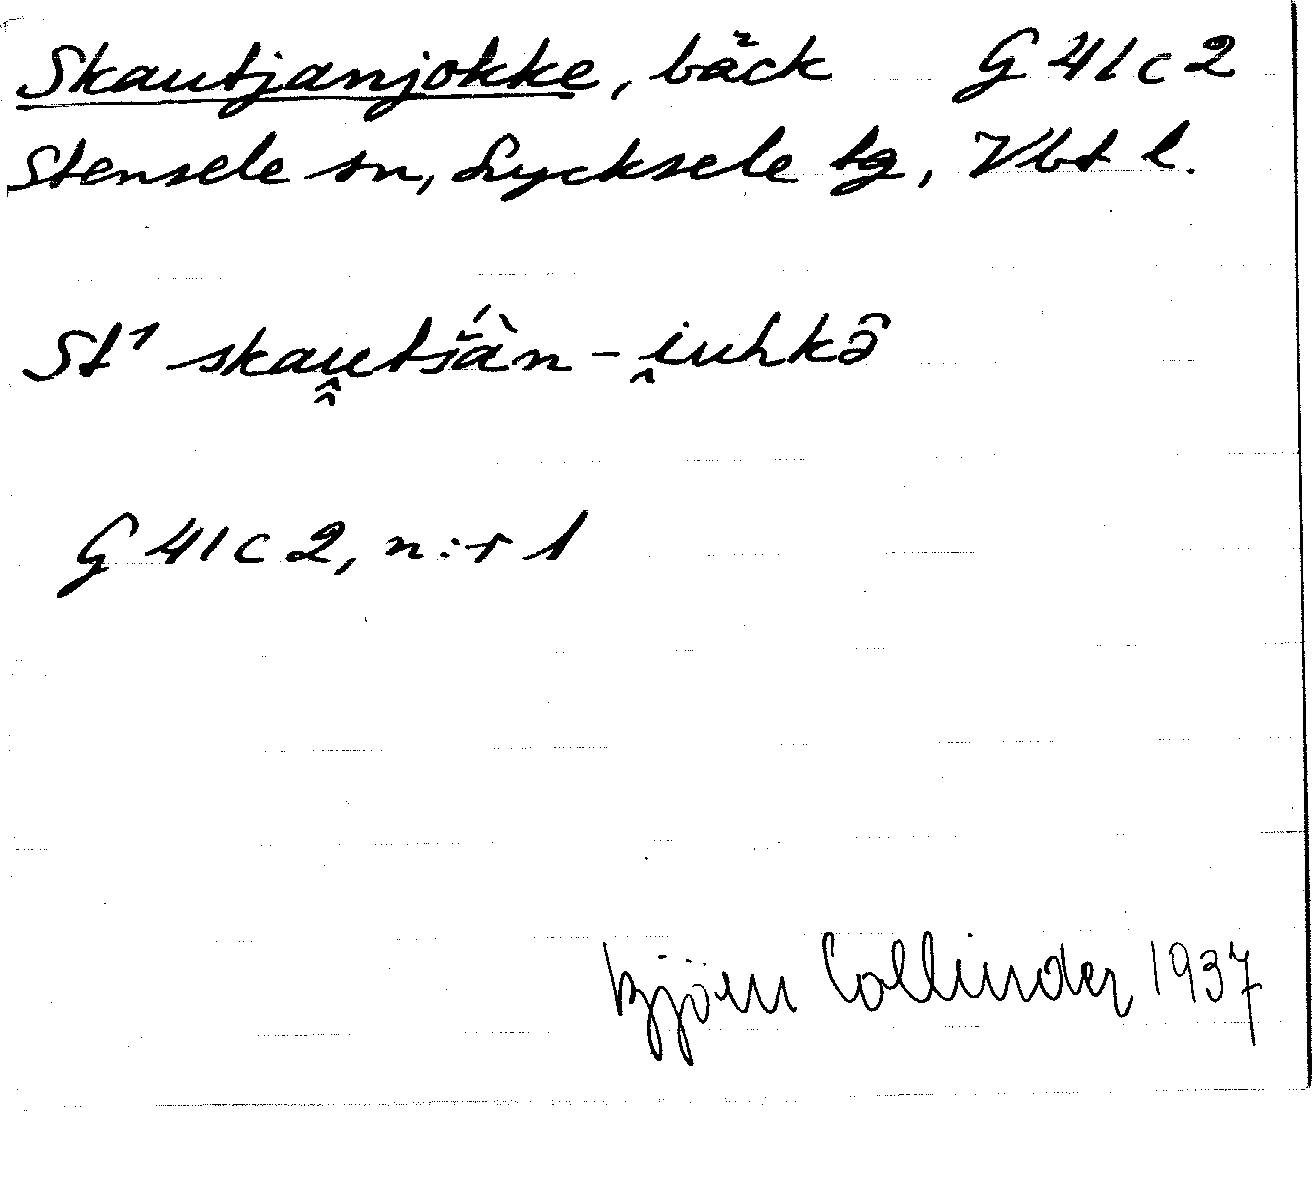 Skautjanjokke, bäck G 41 c 2
Stensele sn, Lycksele tg, Vbt l.
St¹ skau̯tšàn - i̯uhkə̂
G 41 c 2, n:r 1
Björn Collinder 1937